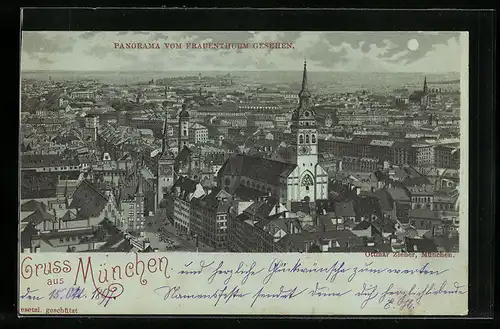 PANORAMA VOM FRAUENTHURM GESEHEN.
Ottmar Zieher, München.
Gruss aus München
und herzliche Glückwünsche zum werten
den 15. Okt. 1897
Namensfeste sendet Deine Dich herzlichliebende
esetzl. geschützt